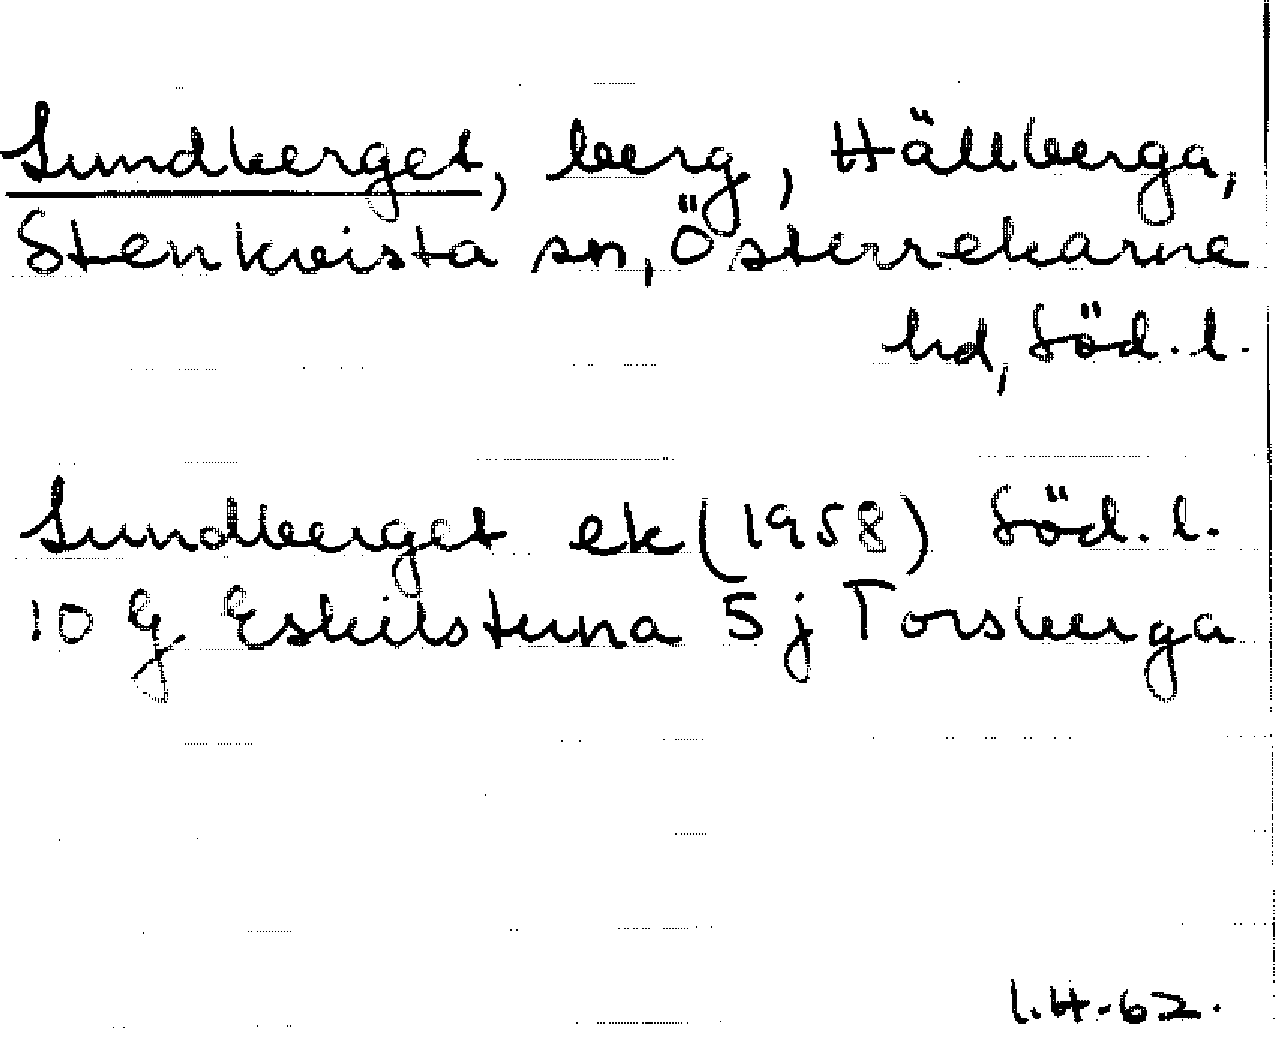 Sundberget, berg, Hällberga,
Stenkvista sn, Österrekarne
hd, Söd. l.
Sundberget ek (1958) Söd. l.
10 G Eskilstuna 5 j Torsberga
I.H-62.